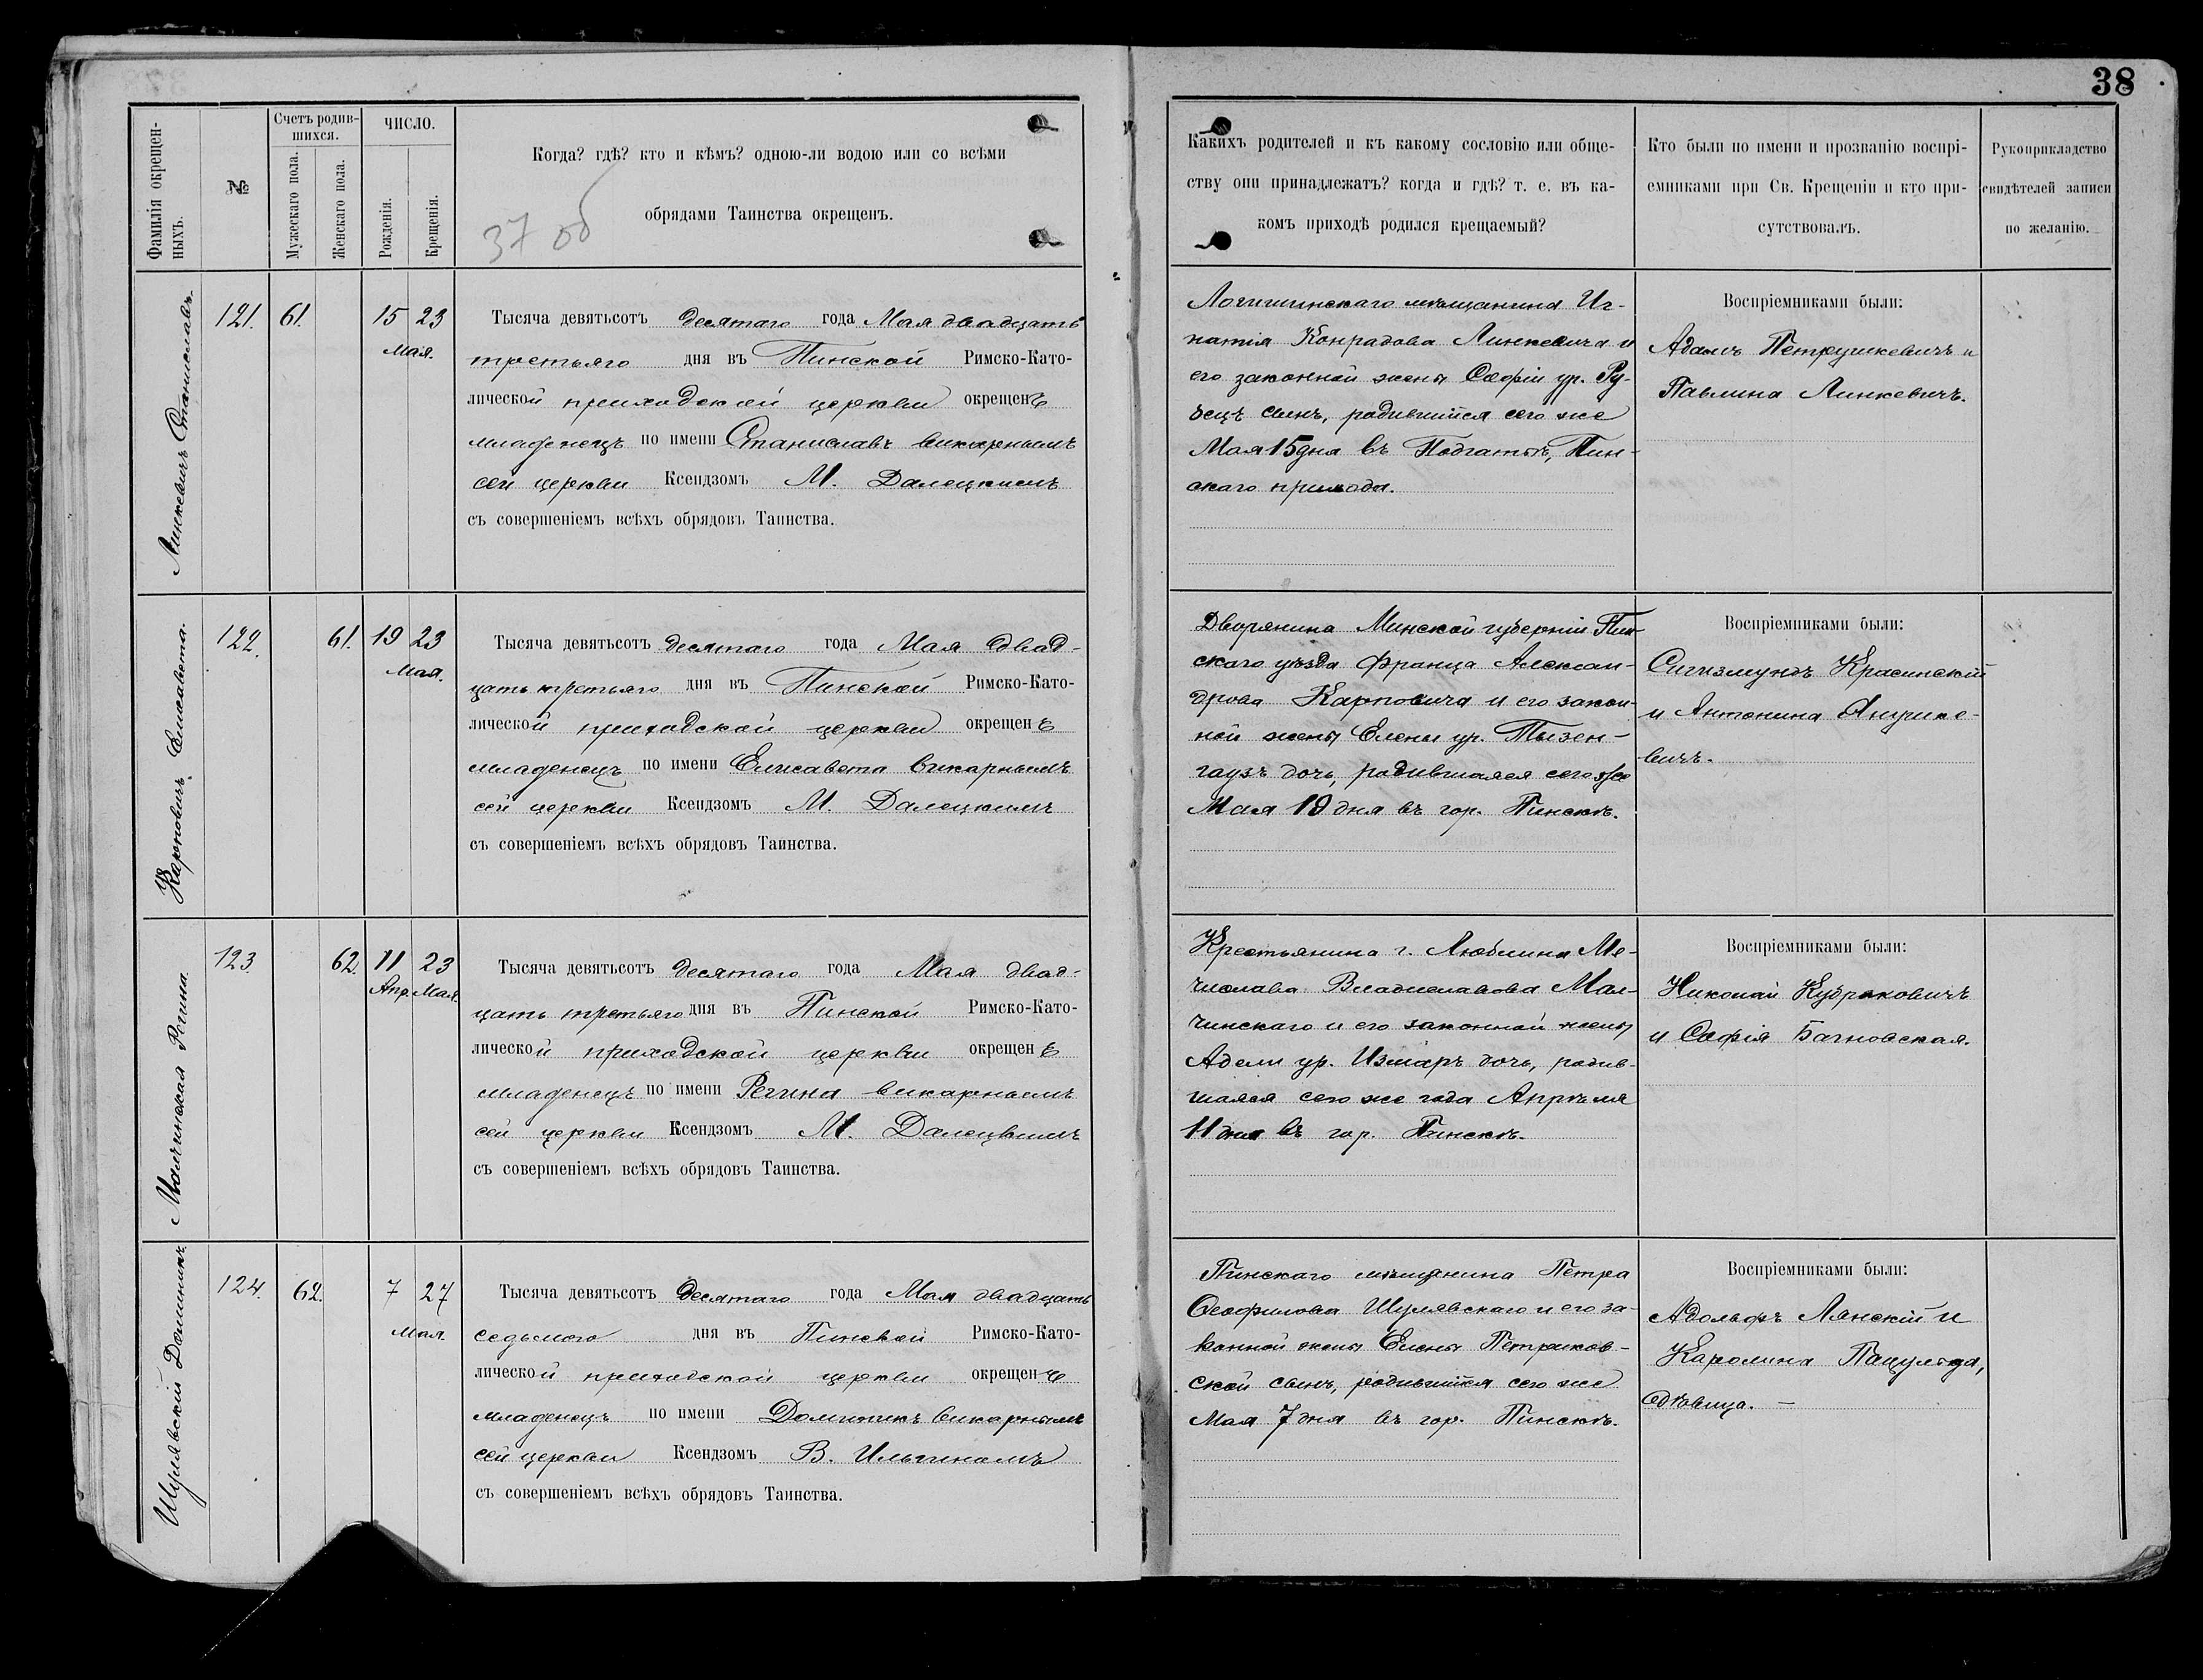 38
Фамилія окрещен-
ныхъ.
№
Счетъ родив-
шихся.
Мужескаго пола.
Женскаго пола.
ЧИСЛО.
Рожденія.
Крещенія.
Когда? гдѣ? кто и кѣмъ? одною-ли водою или со всѣми
обрядами Таинства окрещенъ.
37 об
Какихъ родителей и къ какому сословію или обще-
ству они принадлежатъ? когда и гдѣ? т. е. въ ка-
комъ приходѣ родился крещаемый?
Кто были по имени и прозванію воспрі-
емниками при Св. Крещеніи и кто при-
сутствовалъ.
Рукоприкладство
свидѣтелей записи
по желанію.
Линкевичъ Станиславъ.
121. 61. 15 23
Мая.
Тысяча девятьсотъ десятаго года Мая двадцать
третьяго дня въ Пинской Римско-Като-
лической приходской церкви окрещенъ
младенецъ по имени Станиславъ викарнымъ
сей церкви Ксендзомъ М. Далецкимъ
съ совершеніемъ всѣхъ обрядовъ Таинства.
Логишинскаго мѣщанина Иг-
натія Конрадова Линкевича и
его законной жены Софіи ур. Ру-
сынъ, родившійся сего же
Мая 15 дня въ Пин-
скаго прихода.
Воспріемниками были:
Адамъ Петрушкевичъ и
Павлина Линкевичъ.
Карповичъ Елисавета.
122. 61. 19 23
Мая.
Тысяча девятьсотъ десятаго года Мая двад-
цать третьяго дня въ Пинской Римско-Като-
лической приходской церкви окрещенъ
младенецъ по имени Елисавета викарнымъ
сей церкви Ксендзомъ М. Далецкимъ
съ совершеніемъ всѣхъ обрядовъ Таинства.
Дворянина Минской губерніи Пин-
скаго уѣзда Франца Алексан-
дрова Карповича и его закон-
ной жены Елены ур. Тызен-
гаузъ дочь, родившаяся сего же
Мая 19 дня въ гор. Пинскѣ.
Воспріемниками были:
Сигизмундъ Красинскій
и Антонина
вичъ.
Малчинская Регина.
123. 62. 11 23
Апр. Мая.
Тысяча девятьсотъ десятаго года Мая двад-
цать третьяго дня въ Пинской Римско-Като-
лической приходской церкви окрещенъ
младенецъ по имени Регина викарнымъ
сей церкви Ксендзомъ М. Далецкимъ
съ совершеніемъ всѣхъ обрядовъ Таинства.
Крестьянина г. Люблина Ме-
числава Владиславова Мал-
чинскаго и его законной жены
Адели ур. дочь, родив-
шаяся сего же года Апрѣля
11 дня въ гор. Пинскѣ.
Воспріемниками были:
Николай Кудраковичъ
и Софія Багновская.
Шулявскій Доминикъ.
124. 62. 7 27
Мая.
Тысяча девятьсотъ десятаго года Мая двадцать
седьмого дня въ Пинской Римско-Като-
лической приходской церкви окрещенъ
младенецъ по имени Доминикъ викарнымъ
сей церкви Ксендзомъ В. Ильгиномъ
съ совершеніемъ всѣхъ обрядовъ Таинства.
Пинскаго мѣщанина Петра
Ѳеофилова Шулявскаго и его за-
конной жены Елены Петриков-
ской сынъ, родившійся сего же
Мая 7 дня въ гор. Пинскѣ.
Воспріемниками были:
Адольфъ Лянскій и
Каролина
дѣвица. —